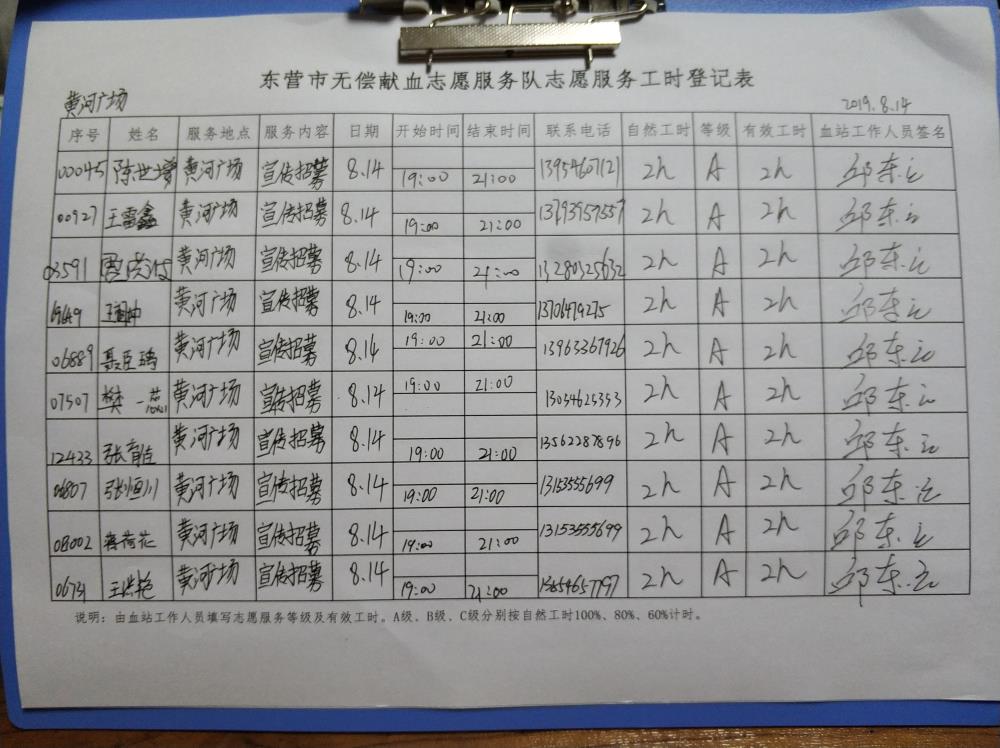 东营市无偿献血志愿服务队志愿服务工时登记表
黄河广场 2019.8.14
序号 姓名 服务地点 服务内容 日期 开始时间 结束时间 联系电话 自然工时 等级 有效工时 血站工作人员签名
00045 陈世增 黄河广场 宣传招募 8.14 19:00 21:00 13954607121 2h A 2h 邱东
00927 王雪鑫 黄河广场 宣传招募 8.14 19:00 21:00 2h A 2h 邱东
03591 黄河广场 宣传招募 8.14 19:00 21:00 13280325632 2h A 2h 邱东
黄河广场 宣传招募 8.14 19:00 21:00 2h A 2h 邱东
06889 聂臣 黄河广场 宣传招募 8.14 19:00 21:00 13963367926 2h A 2h 邱东
07507 樊一 黄河广场 宣传招募 8.14 19:00 21:00 2h A 2h 邱东
12433 张 黄河广场 宣传招募 8.14 19:00 21:00 13562287896 2h A 2h 邱东
06807 张恒川 黄河广场 宣传招募 8.14 19:00 21:00 2h A 2h 邱东
08002 蒋荷花 黄河广场 宣传招募 8.14 19:00 21:00 13153555699 2h A 2h 邱东
06731 王洪艳 黄河广场 宣传招募 8.14 19:00 21:00 2h A 2h 邱东
说明：由血站工作人员填写志愿服务等级及有效工时。A级、B级、C级分别按自然工时100%、80%、60%计时。